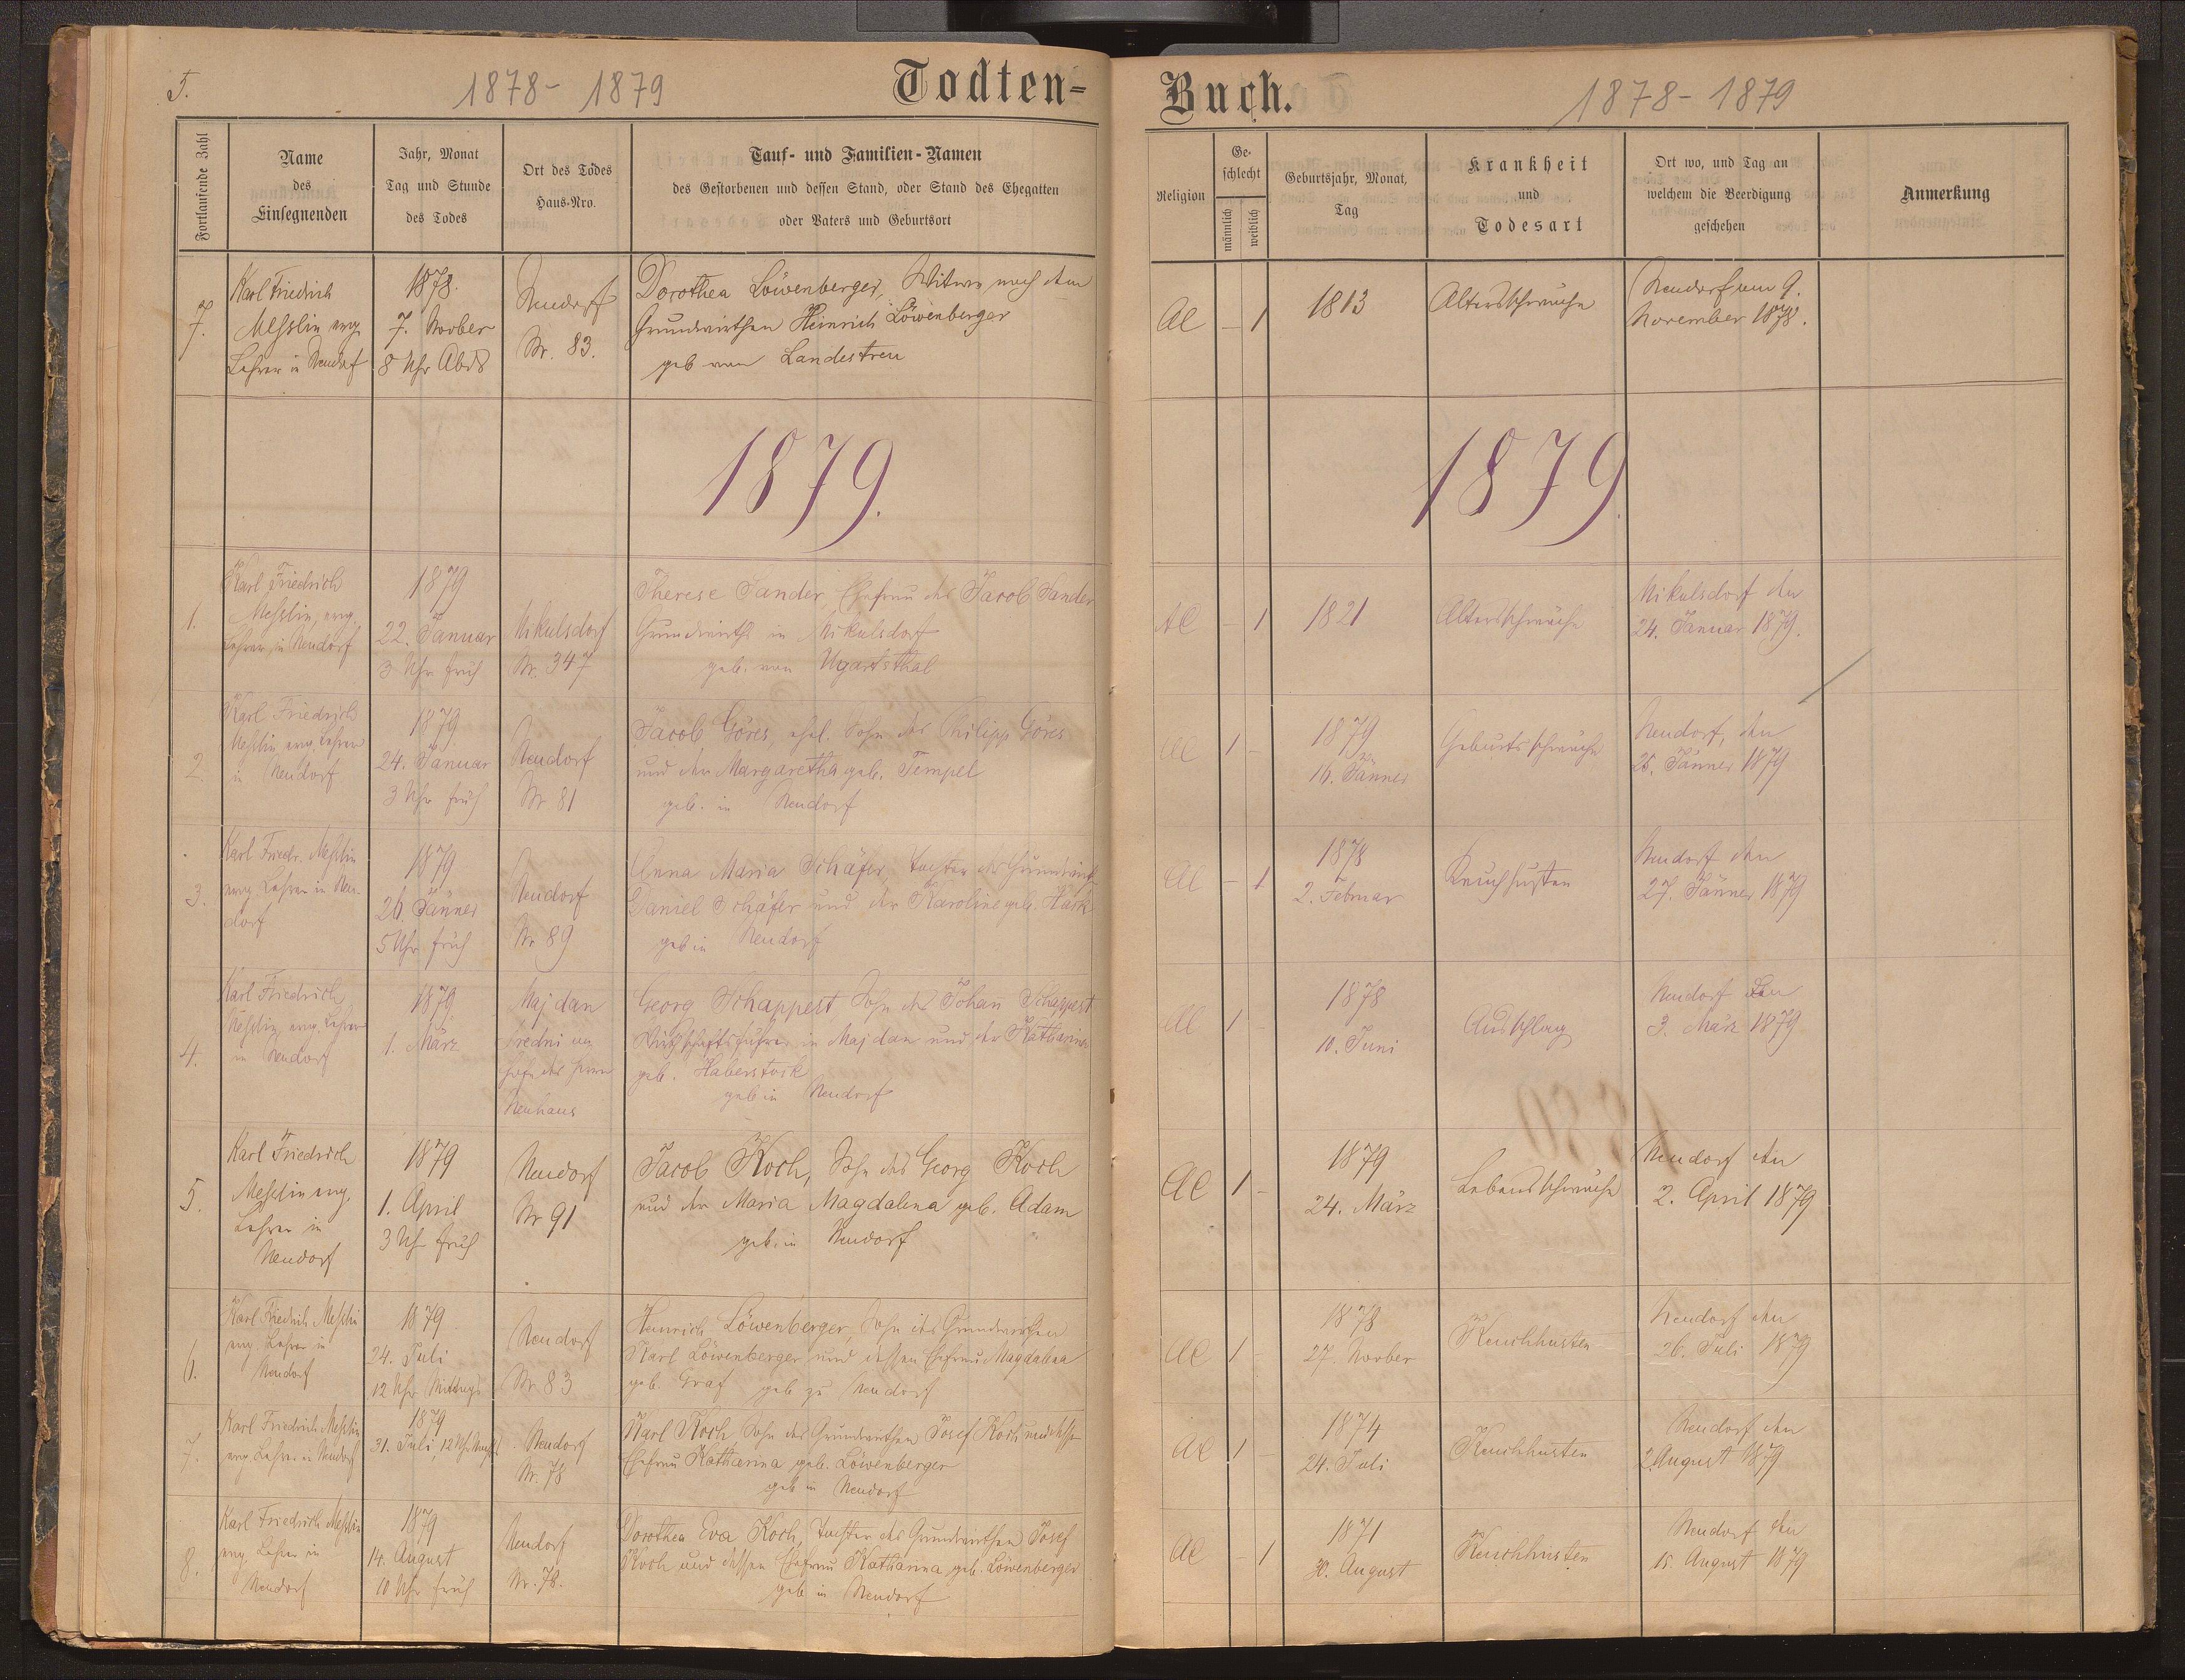 5.
1878- 1879
Todten-
Fortlaufende Zahl
Name
des
Einsegnenden
Jahr, Monat
Tag und Stunde
des Todes
Ort des Todes
Haus-Nro.
Tauf- und Familien-Namen
des Gestorbenen und dessen Stand, oder Stand des Ehegatten
oder Vaters und Geburtsort
7.
Karl Friedrich
Messlin evg.
Lehrer in Neudorf
1878.
7. Novber
8 Uhr Abds
Neudorf
Nr. 83.
Dorothea Löwenberger, Witwe nach dem
Grundwirthen Heinrich Löwenberger
geb von Landestreu
1879.
1.
Karl Friedrich
Messlin, evg.
Lehrer in Neudorf
1879
22. Januar
3 Uhr früh
Mikulsdorf
Nr. 347
Therese Sander, Ehefrau des Jacob Sander
Grundwirth in Mikulsdorf
geb. von Ugartsthal
2.
Karl Friedrich
Messlin evg. Lehrer
in Neudorf
1879
24. Januar
3 Uhr früh
Neudorf
Nr 81
Jacob Göres, ehel. Sohn des Philipp Göres
und der Margaretha geb. Tempel
geb. in Neudorf
3.
Karl Friedr. Messlin
evg Lehrer in Neu-
dorf
1879
26. Jänner
5 Uhr früh
Neudorf
Nr 89
Anna Maria Schäfer, Tochter des Grundwirth
Daniel Schäfer und der Karoline geb.
geb in Neudorf
4.
Karl Friedrich
Messlin evg. Lehrer
in Neudorf
1879
1. März
Majdan
sredni
Neuhaus
Georg Schappert Sohn des Johan Schappert
Wirthschaftsführer in Majdan und der Katharina
geb. Haberstock
geb in Neudorf
5.
Karl Friedrich
Messlin evg.
Lehrer in
Neudorf
1879
1. April
3 Uh früh
Neudorf
Nr 91
Jacob Koch, Sohn des Georg Koch
und der Maria Magdalena geb. Adam
geb. in Neudorf
6.
Karl Friedrich Messlin
evg. Lehrer in
Neudorf
1879
24. Juli
12 Uhr Mittags
Neudorf
Nr 83
Heinrich Löwenberger, Sohn des Grundwirthen
Karl Löwenberger und dessen Ehefrau Magdalena
geb. Graf geb zu Neudorf
7.
Karl Friedrich Messlin
evg. Lehrer in Neudorf
1879
31. Juli, 12 Uhr
Neudorf
Nr. 78
Karl Koch Sohn des Grundwirthen Josef Koch und dessen
Ehefrau Katharina geb. Löwenberger
geb in Neudorf
8.
Karl Friedrich Messlin
evg. Lehrer in
Neudorf
1879
14. August
10 Uhr früh
Neudorf
Nr. 78.
Dorothea Eva Koch, Tochter des Grundwirthen Josef
Koch und dessen Ehefrau Katharina geb. Löwenberger
geb in Neudorf
Buch.
1878- 1879
Religion
Ge-
schlecht
männlich
weiblich
Geburtsjahr, Monat,
Tag
Krankheit
und
Todesart
Ort wo, und Tag an
welchem die Beerdigung
geschehen
Anmerkung
AC
- 1
1813
Altersschwäche
Neudorf am 9.
November 1878.
1879.
AC
- 1
1821
Altersschwäche
Mikulsdorf den
24. Januar 1879.
AC
1 -
1879
16. Jänner
Geburtsschwäche
Neudorf, den
25. Jänner 1879
AC
- 1
1878
2. Februar
Keuchhusten
Neudorf den
27. Jänner 1879
AC
1 -
1878
10. Juni
Ausschlag
Neudorf den
3. März 1879
AC
1 -
1879
24. März
Lebensschwäche
Neudorf den
2. April 1879
AC
1 -
1878
27. Novber
Keuchhusten
Neudorf den
26. Juli 1879
AC
1
1874
24. Juli
Keuchhusten
Neudorf den
2. August 1879
AC
- 1
1871
30. August
Keuchhusten
Neudorf den
15. August 1879